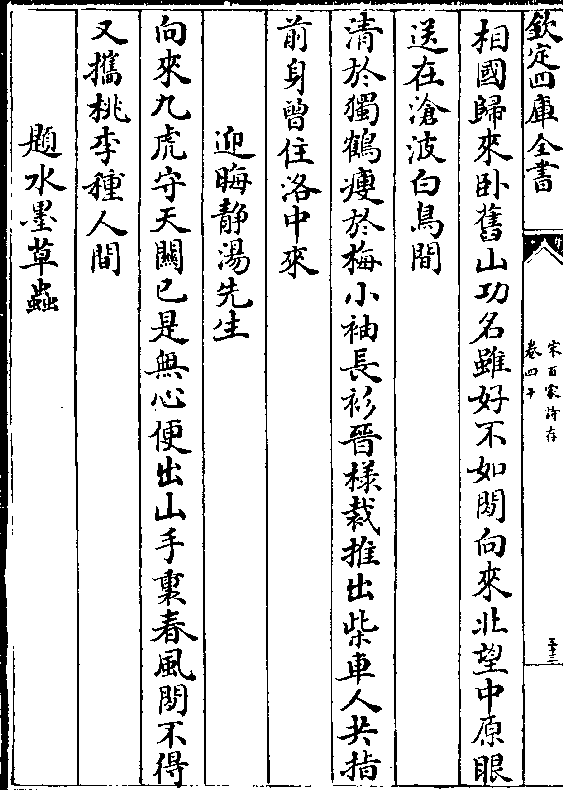 欽定四庫全書
宋百家詩存
卷四十
五十三
相國歸來卧舊山功名雖好不如閒向來北望中原眼
送在滄波白鳥間
清於獨鶴瘦於梅小袖長衫晉様裁推出柴車人共指
前身曽住洛中來
迎晦静湯先生
向來九虎守天闗已是無心便出山手裏春風閒不得
又攜桃李種人間
題水墨草蟲